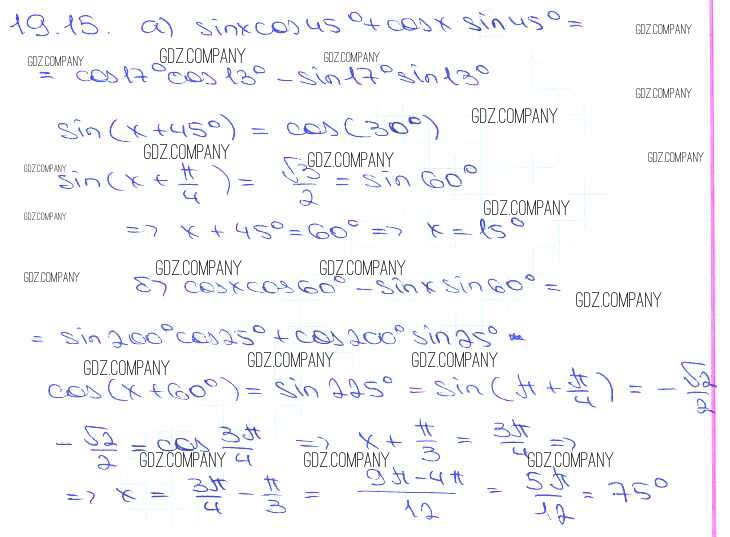 19.15. а) sinx cos45° + cosx sin45° =
GDZ.COMPANY
GDZ.COMPANY GDZ.COMPANY GDZ.COMPANY
= cos17° cos13° - sin17° sin13°
GDZ.COMPANY
GDZ.COMPANY
sin(x+45°) = cos(30°)
GDZ.COMPANY GDZ.COMPANY GDZ.COMPANY
GDZ.COMPANY
sin(x + π/4) = √3/2 = sin 60°
GDZ.COMPANY GDZ.COMPANY
=> x + 45° = 60° => x = 15°
GDZ.COMPANY GDZ.COMPANY GDZ.COMPANY
б) cosx cos60° - sinx sin60° =
GDZ.COMPANY
= sin200° cos25° + cos200° sin25°
GDZ.COMPANY GDZ.COMPANY GDZ.COMPANY
cos(x+60°) = sin 225° = sin(π + π/4) = -√2/2
-√2/2 = cos 3π/4 => x + π/3 = 3π/4 =>
GDZ.COMPANY GDZ.COMPANY GDZ.COMPANY
=> x = 3π/4 - π/3 = 9π-4π/12 = 5π/12 = 75°